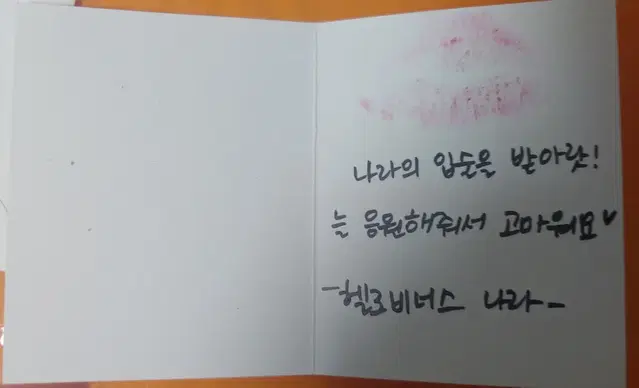 나라의 입술을 받아랏!
늘 응원해줘서 고마워요♥
-헬로비너스 나라-